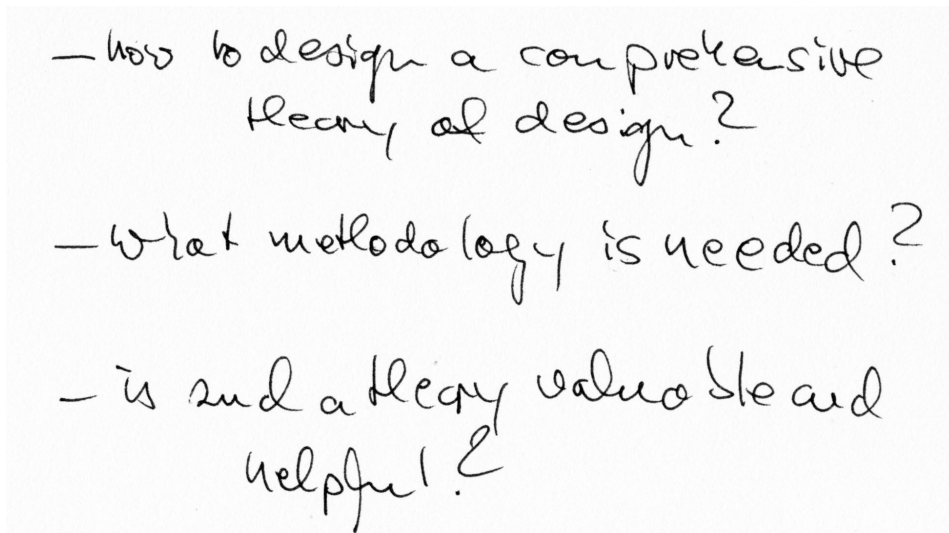 – how to design a comprehensive
theory of design?
– what methodology is needed?
– is such a theory valuable and
helpful?